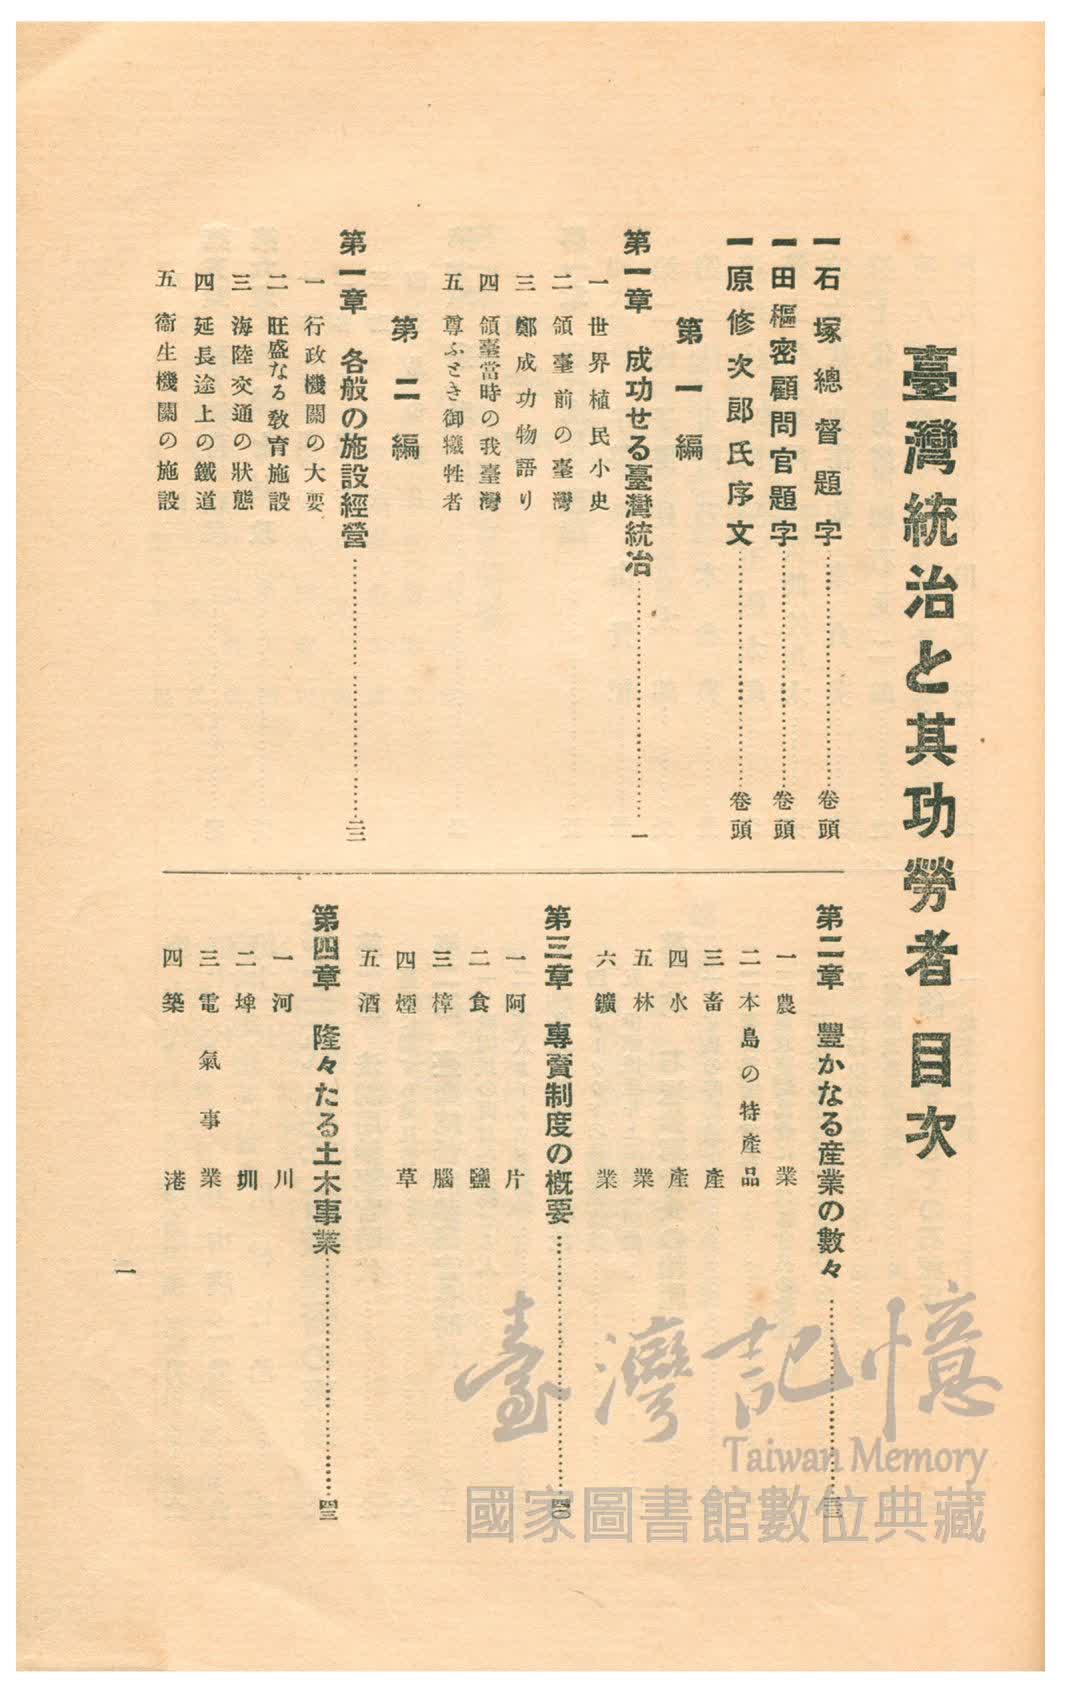 臺灣統治と其功勞者 目次
一石塚總督題字…………卷頭
一田樞密顧問官題字…………卷頭
一原修次郎氏序文…………卷頭
第一編
第一章 成功せる臺灣統治…………一
一 世界植民小史
二 領臺前の臺灣
三 鄭成功物語り
四 領臺當時の我臺灣
五 尊ふとき御犧牲者
第二編
第一章 各般の施設經營…………二三
一 行政機關の大要
二 旺盛なる敎育施設
三 海陸交通の狀態
四 延長途上の鐵道
五 衞生機關の施設
第二章 豐かなる産業の數々…………
一 農業
二 本島の特産品
三 畜産
四 水産
五 林業
六 鑛業
第三章 專賣制度の槪要…………四〇
一 阿片
二 食鹽
三 樟腦
四 煙草
五 酒
第四章 隆々たる土木事業…………四三
一 河川
二 埤圳
三 電氣事業
四 築港
一
臺灣記憶
Taiwan Memory
國家圖書館數位典藏